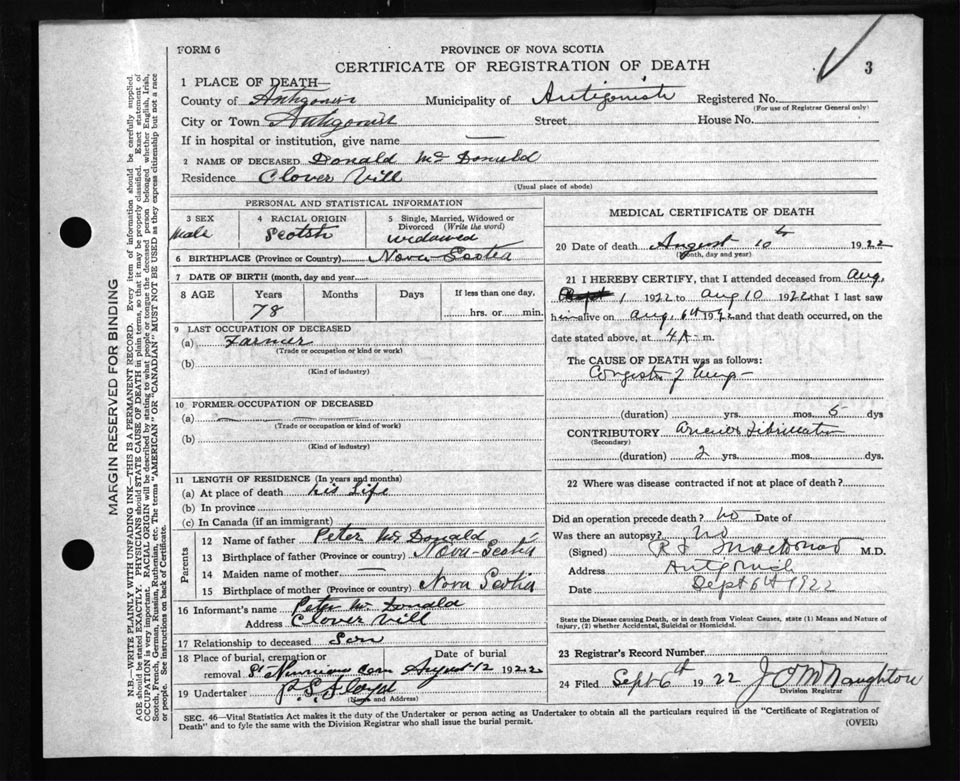 FORM 6
PROVINCE OF NOVA SCOTIA
CERTIFICATE OF REGISTRATION OF DEATH
3
1 PLACE OF DEATH—
County of Antigonish Municipality of Antigonish Registered No.
(For use of Registrar General only)
City or Town Antigonish Street House No.
If in hospital or institution, give name —
2 NAME OF DECEASED Donald McDonald
Residence Clover Vill
(Usual place of abode)
PERSONAL AND STATISTICAL INFORMATION
3 SEX 4 RACIAL ORIGIN 5 Single, Married, Widowed or
Divorced (Write the word)
Male Scotsh widowed
6 BIRTHPLACE (Province or Country) Nova-Scotia
7 DATE OF BIRTH (month, day and year)
8 AGE Years Months Days If less than one day,
78 hrs. or min.
9 LAST OCCUPATION OF DECEASED
(a) Farmer
(Trade or occupation or kind or work)
(b)
(Kind of industry)
10 FORMER OCCUPATION OF DECEASED
(a) — — —
(Trade or occupation or kind of work)
(b)
(Kind of industry)
11 LENGTH OF RESIDENCE (In years and months)
(a) At place of death his life
(b) In province
(c) In Canada (if an immigrant)
Parents
12 Name of father Peter McDonald
13 Birthplace of father (Province or country) Nova-Scotia
14 Maiden name of mother —
15 Birthplace of mother (Province or country) Nova Scotia
16 Informant's name Peter McDonald
Address Clover Vill
17 Relationship to deceased Son
18 Place of burial, cremation or Date of burial
removal St August 12 1922
19 Undertaker
(Name and Address)
MEDICAL CERTIFICATE OF DEATH
20 Date of death August 10th 1922
(Month, day and year)
21 I HEREBY CERTIFY, that I attended deceased from Aug.
1 1922 to Aug 10 1922 that I last saw
him alive on Aug. 6th 1922 and that death occurred, on the
date stated above, at 4 A. m.
The CAUSE OF DEATH was as follows:
Congestion of lungs —
(duration) yrs. mos. 5 dys
CONTRIBUTORY
(Secondary)
(duration) 2 yrs. mos. dys.
22 Where was disease contracted if not at place of death?
Did an operation precede death? No Date of
Was there an autopsy? No
(Signed) M.D.
Address Antigonish
Date Sept 6th 1922
State the Disease causing Death, or in death from Violent Causes, state (1) Means and Nature of
Injury, (2) whether Accidental, Suicidal or Homicidal.
23 Registrar's Record Number
24 Filed Sept 6th 1922 J O McNaughton
Division Registrar
SEC. 46—Vital Statistics Act makes it the duty of the Undertaker or person acting as Undertaker to obtain all the particulars required in the "Certificate of Registration of
Death" and to fyle the same with the Division Registrar who shall issue the burial permit.
(OVER)
MARGIN RESERVED FOR BINDING
N.B.—WRITE PLAINLY WITH UNFADING INK—THIS IS A PERMANENT RECORD. Every item of information should be carefully supplied.
AGE should be stated EXACTLY. PHYSICIANS should STATE CAUSE OF DEATH in plain terms, so that it may be properly classified. Exact statement of
OCCUPATION is very important. RACIAL ORIGIN will be described by stating to what people or tongue the deceased person belonged, whether English, Irish,
Scotch, French, German, Russian, Ruthenian, etc. The terms "AMERICAN" OR "CANADIAN" MUST NOT BE USED as they express citizenship but not a race
or people. See instructions on back of Certificate.